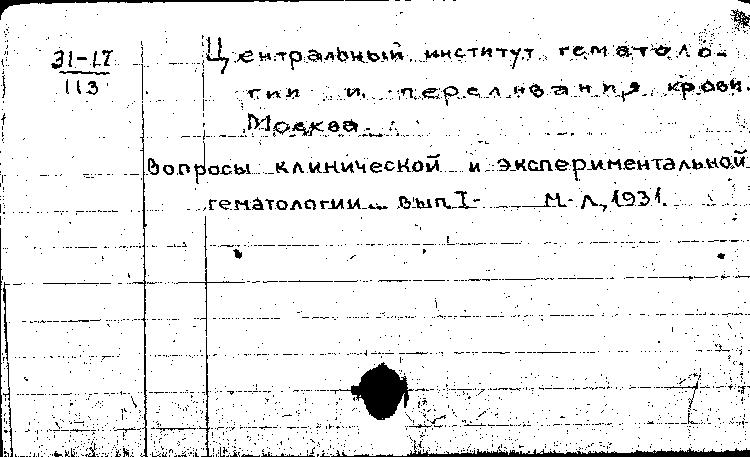 31-17
113
Центральный институт гематоло-
гии и переливания крови.
Москва.
Вопросы клинической и экспериментальной
гематологии. Вып. I- М-Л, 1931.